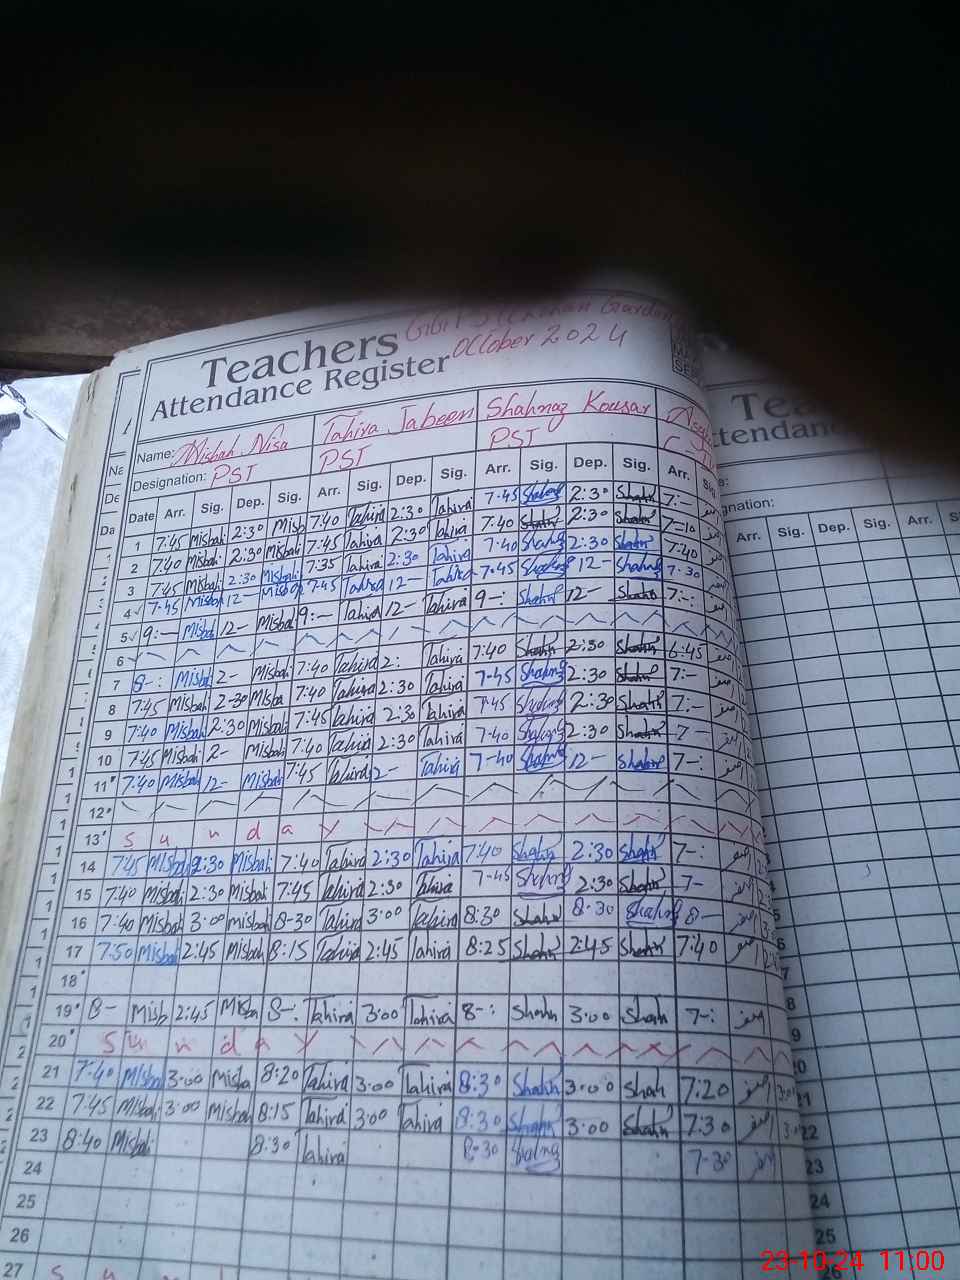 October 2024
Teachers
Attendance Register
Name: Misbah Nisa Tahira Jabeen Shahnaz Kousar
Designation: PST PST PST
Date Arr. Sig. Dep. Sig. Arr. Sig. Dep. Sig. Arr. Sig. Dep. Sig. Arr.
1 7:45 Misbah 2:30 Misb 7:40 Tahira 2:30 Tahira 7.45 Shahnaz 2:30 Shahn 7:-
2 7:40 Misbah 2:30 Misbah 7:45 Tahira 2:30 Tahira 7:40 Shahn 2:30 Shahn 7=10
3 7:45 Misbah 2:30 Misbah 7:35 Tahira 2:30 Tahira 7:40 Shahng 2:30 Shahn 7:40
4 7:45 Misbah 12- Misbah 7:45 Tahira 12- Tahira 7.45 Shahng 12- Shahng 7-30
5 9:- Misbah 12- Misbah 9:- Tahira 12- Tahira 9-: Shahn 12- Shahn 7:-
6
7 8-: Misbah 2- Misbah 7:40 Tahira 2: Tahira 7:40 Shahn 2:30 Shahn 6:45
8 7:45 Misbah 2-30 Misba 7:40 Tahira 2:30 Tahira 7-45 Shahng 2:30 Shahn 7:-
9 7:40 Misbah 2:30 Misbah 7:45 Tahira 2:30 Tahira 7.45 Shahng 2:30 Shahn 7:-
10 7:45 Misbah 2- Misbah 7:40 Tahira 2:30 Tahira 7-40 Shahng 2:30 Shahn 7-
11 7:40 Misbah 12- Misbah 7:45 Tahira 2- Tahira 7-40 Shahng 12- Shahn 7-:
12
13 Sunday
14 7:45 Misbah 2:30 Misbah 7:40 Tahira 2:30 Tahira 7:40 Shahn 2:30 Shahn 7-:
15 7:40 Misbah 2:30 Misbah 7:45 Tahira 2:30 Tahira 7-45 Shahng 2:30 Shahn 7-
16 7:40 Misbah 3:00 misbah 8-30 Tahira 3:00 Tahira 8:30 Shahn 8-30 Shahng 8-
17 7:50 Misbah 2:45 Misbah 8:15 Tahira 2:45 Tahira 8:25 Shahn 2:45 Shahn 7:40
18
19 8- Misb 2:45 Misba 8-: Tahira 3:00 Tahira 8-: Shahn 3:00 Shahn 7-:
20 Sunday
21 7:40 Misba 3:00 Misba 8:20 Tahira 3:00 Tahira 8:30 Shahn 3:00 Shah 7:20
22 7:45 Misbah 3:00 Misbah 8:15 Tahira 3:00 Tahira 8:30 Shahn 3:00 Shahn 7:30
23 8:40 Misbah 8:30 Tahira 8-30 Shahng 7-30
24
25
26
27 S u n
Tea
ttendance
gnation:
Arr. Sig. Dep. Sig. Arr.
22
23
24
25
23-10-24 11:00